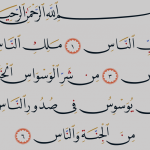 بسم الله الرحمن الرحيم
الناس ١ ملك الناس
٣ من شر الوسواس
يوسوس في صدور الناس
من الجنة والناس ٦